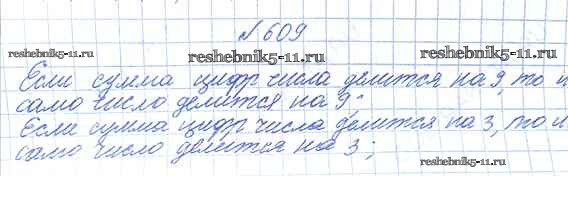 №609
reshebnik5-11.ru reshebnik5-11.ru reshebnik5-11.ru
Если сумма цифр числа делится на 9, то и
само число делится на 9;
Если сумма цифр числа делится на 3, то и
само число делится на 3;
reshebnik5-11.ru